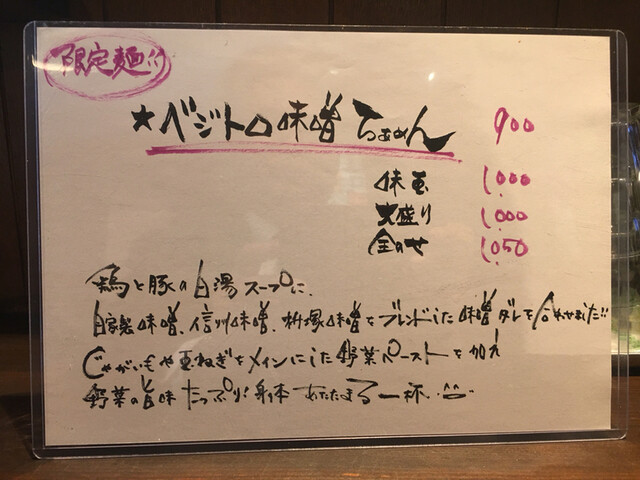 限定麺!!
★ベジトロ味噌らぁめん 900
味玉 1,000
大盛り 1,000
全のせ 1,050
鶏と豚の白湯スープに、
自家製味噌、信州味噌、桝塚味噌をブレンドした味噌ダレを合わせました!!
じゃがいもや玉ねぎをメインにした野菜ペーストを加え
野菜の旨味たっぷり!身体あたたまる一杯